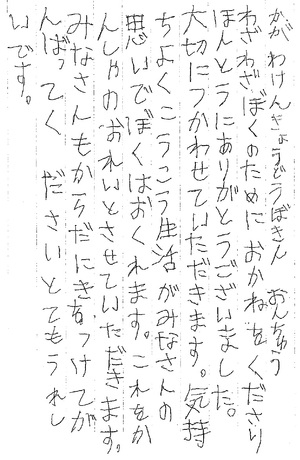 かがわけんきょうどうぼきん おんちゅう
わざわざぼくのためにおかねをくださり
ほんとうにありがとうございました。
大切につかわせていただきます。気持
ちよくこうこう生活がみなさんの
思いでぼくはおくれます。これをか
んしゃのおれいとさせていただきます。
みなさんもからだにきをつけてが
んばってく ださいとてもうれし
いです。